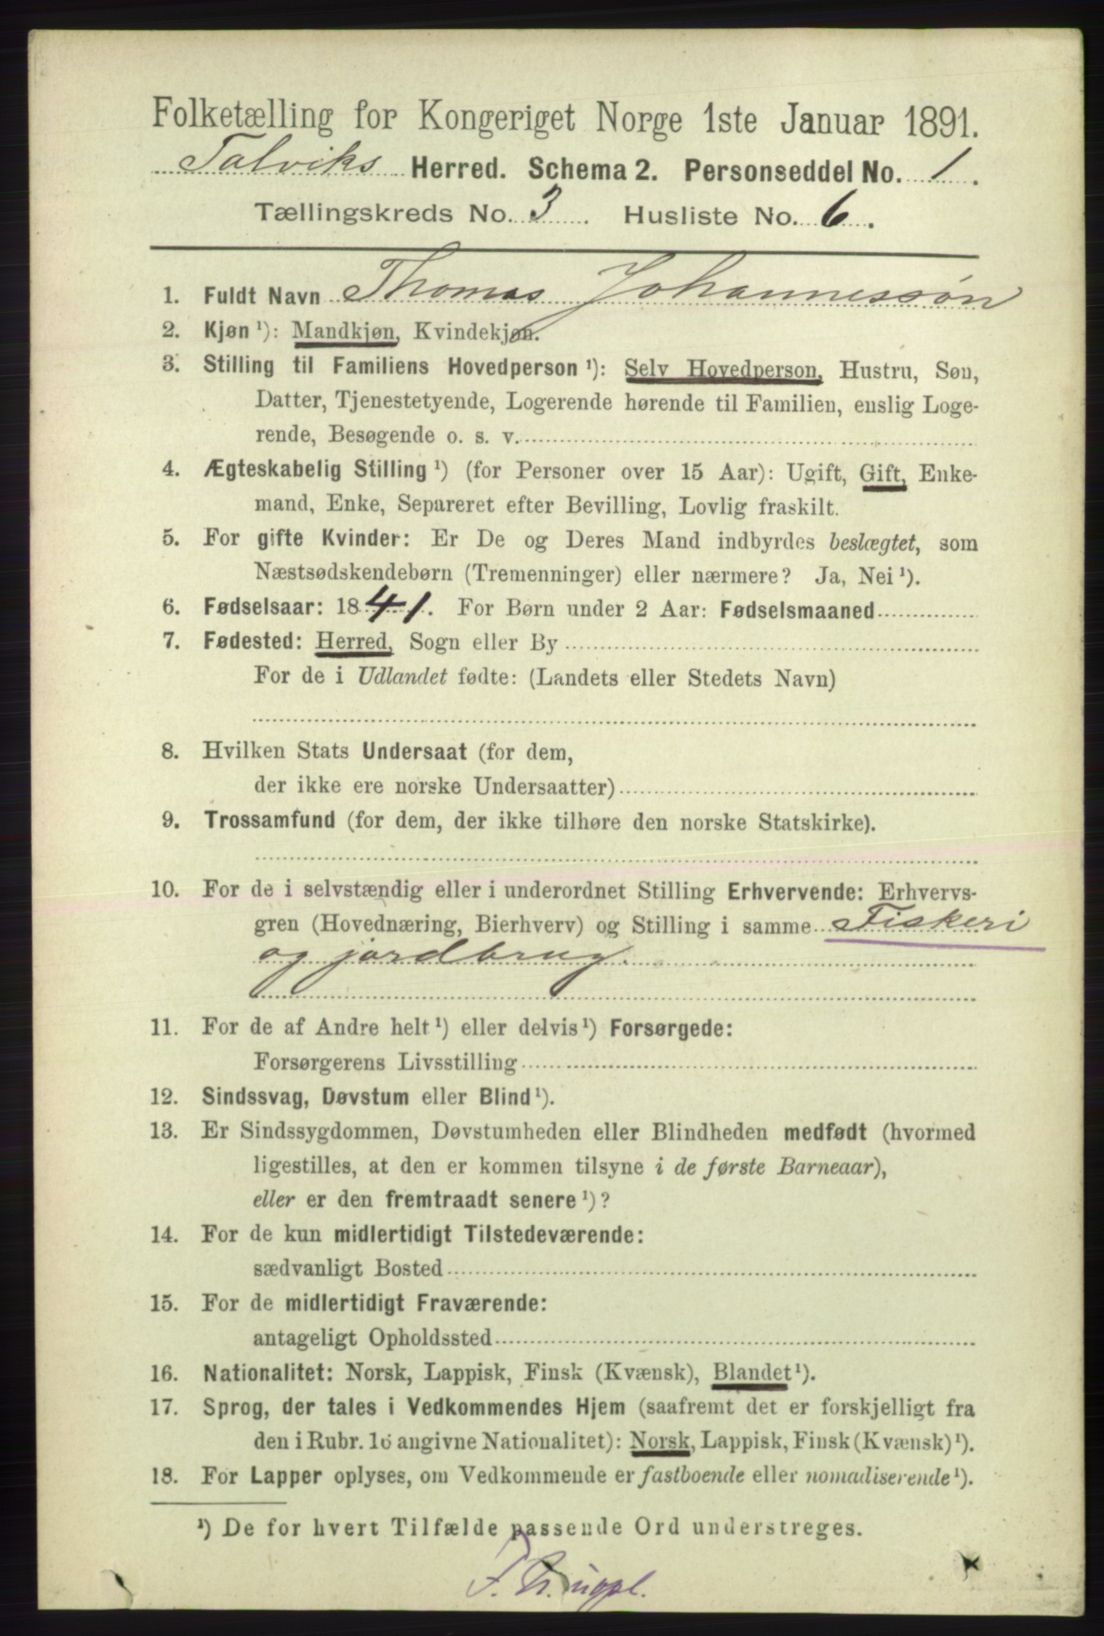 Folketælling for Kongeriget Norge 1ste Januar 1891.
Talviks Herred. Schema 2. Personseddel No. 1.
Tællingskreds No. 3. Husliste No. 6.
1. Fuldt Navn Thomas Johannessøn
2. Kjøn ¹): Mandkjøn, Kvindekjøn.
3. Stilling til Familiens Hovedperson ¹): Selv Hovedperson, Hustru, Søn,
Datter, Tjenestetyende, Logerende hørende til Familien, enslig Loge-
rende, Besøgende o. s. v.
4. Ægteskabelig Stilling ¹) (for Personer over 15 Aar): Ugift, Gift, Enke-
mand, Enke, Separeret efter Bevilling, Lovlig fraskilt.
5. For gifte Kvinder: Er De og Deres Mand indbyrdes beslægtet, som
Næstsødskendebørn (Tremenninger) eller nærmere? Ja, Nei ¹).
6. Fødselsaar: 1841. For Børn under 2 Aar: Fødselsmaaned
7. Fødested: Herred, Sogn eller By
For de i Udlandet fødte: (Landets eller Stedets Navn)
8. Hvilken Stats Undersaat (for dem,
der ikke ere norske Undersaatter)
9. Trossamfund (for dem, der ikke tilhøre den norske Statskirke).
10. For de i selvstændig eller i underordnet Stilling Erhvervende: Erhvervs-
gren (Hovednæring, Bierhverv) og Stilling i samme Fiskeri
og jordbrug.
11. For de af Andre helt ¹) eller delvis ¹) Forsørgede:
Forsørgerens Livsstilling
12. Sindssvag, Døvstum eller Blind ¹).
13. Er Sindssygdommen, Døvstumheden eller Blindheden medfødt (hvormed
ligestilles, at den er kommen tilsyne i de første Barneaar),
eller er den fremtraadt senere ¹)?
14. For de kun midlertidigt Tilstedeværende:
sædvanligt Bosted
15. For de midlertidigt Fraværende:
antageligt Opholdssted
16. Nationalitet: Norsk, Lappisk, Finsk (Kvænsk), Blandet ¹).
17. Sprog, der tales i Vedkommendes Hjem (saafremt det er forskjelligt fra
den i Rubr. 16 angivne Nationalitet): Norsk, Lappisk, Finsk (Kvænsk) ¹).
18. For Lapper oplyses, om Vedkommende er fastboende eller nomadiserende ¹).
¹) De for hvert Tilfælde passende Ord understreges.